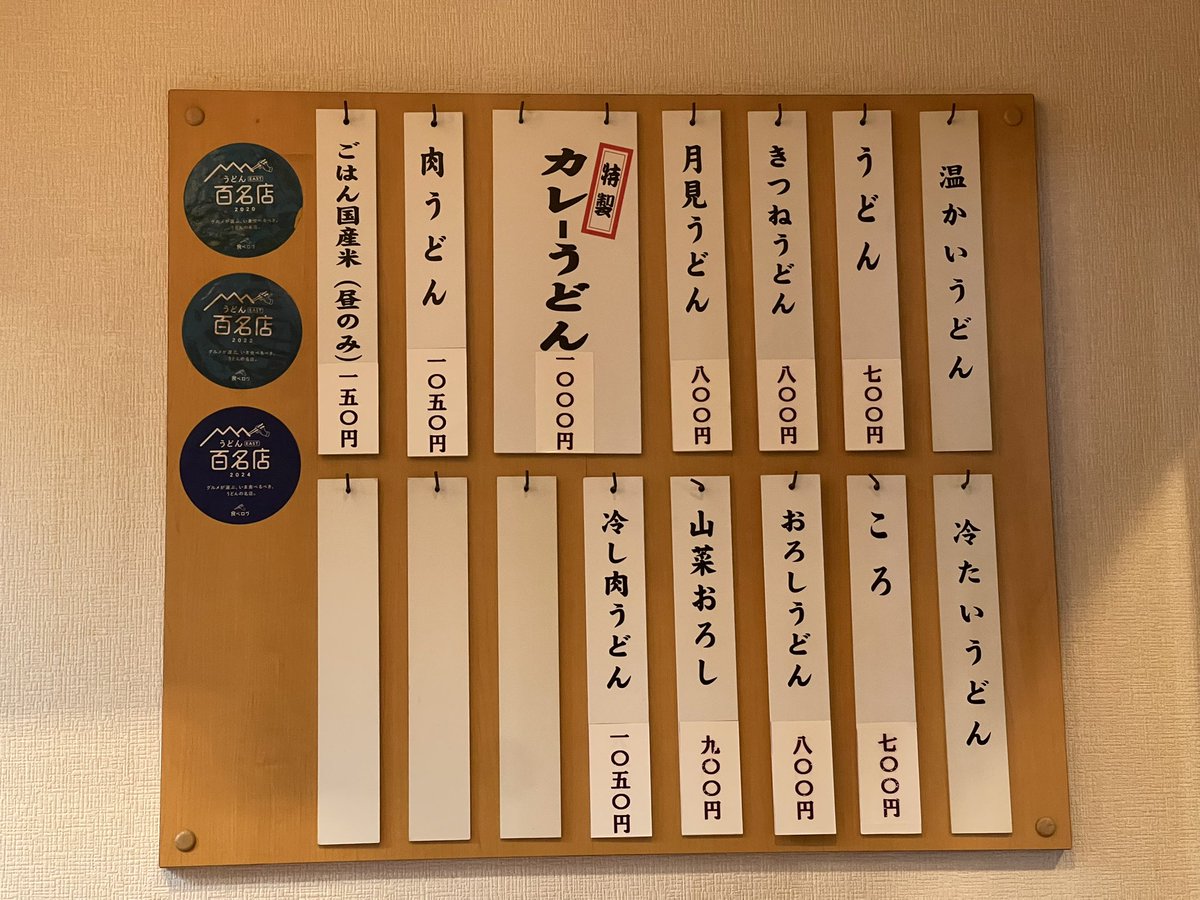 温かいうどん
うどん 七〇〇円
きつねうどん 八〇〇円
月見うどん 八〇〇円
特製
カレーうどん 一〇〇〇円
肉うどん 一〇五〇円
ごはん国産米（昼のみ）一五〇円
冷たいうどん
ころ 七〇〇円
おろしうどん 八〇〇円
山菜おろし 九〇〇円
冷し肉うどん 一〇五〇円
うどん EAST
百名店
2020
グルメが選ぶ、いま食べるべき、
うどんの名店。
食べログ
うどん EAST
百名店
2022
グルメが選ぶ、いま食べるべき、
うどんの名店。
食べログ
うどん EAST
百名店
2024
グルメが選ぶ、いま食べるべき、
うどんの名店。
食べログ